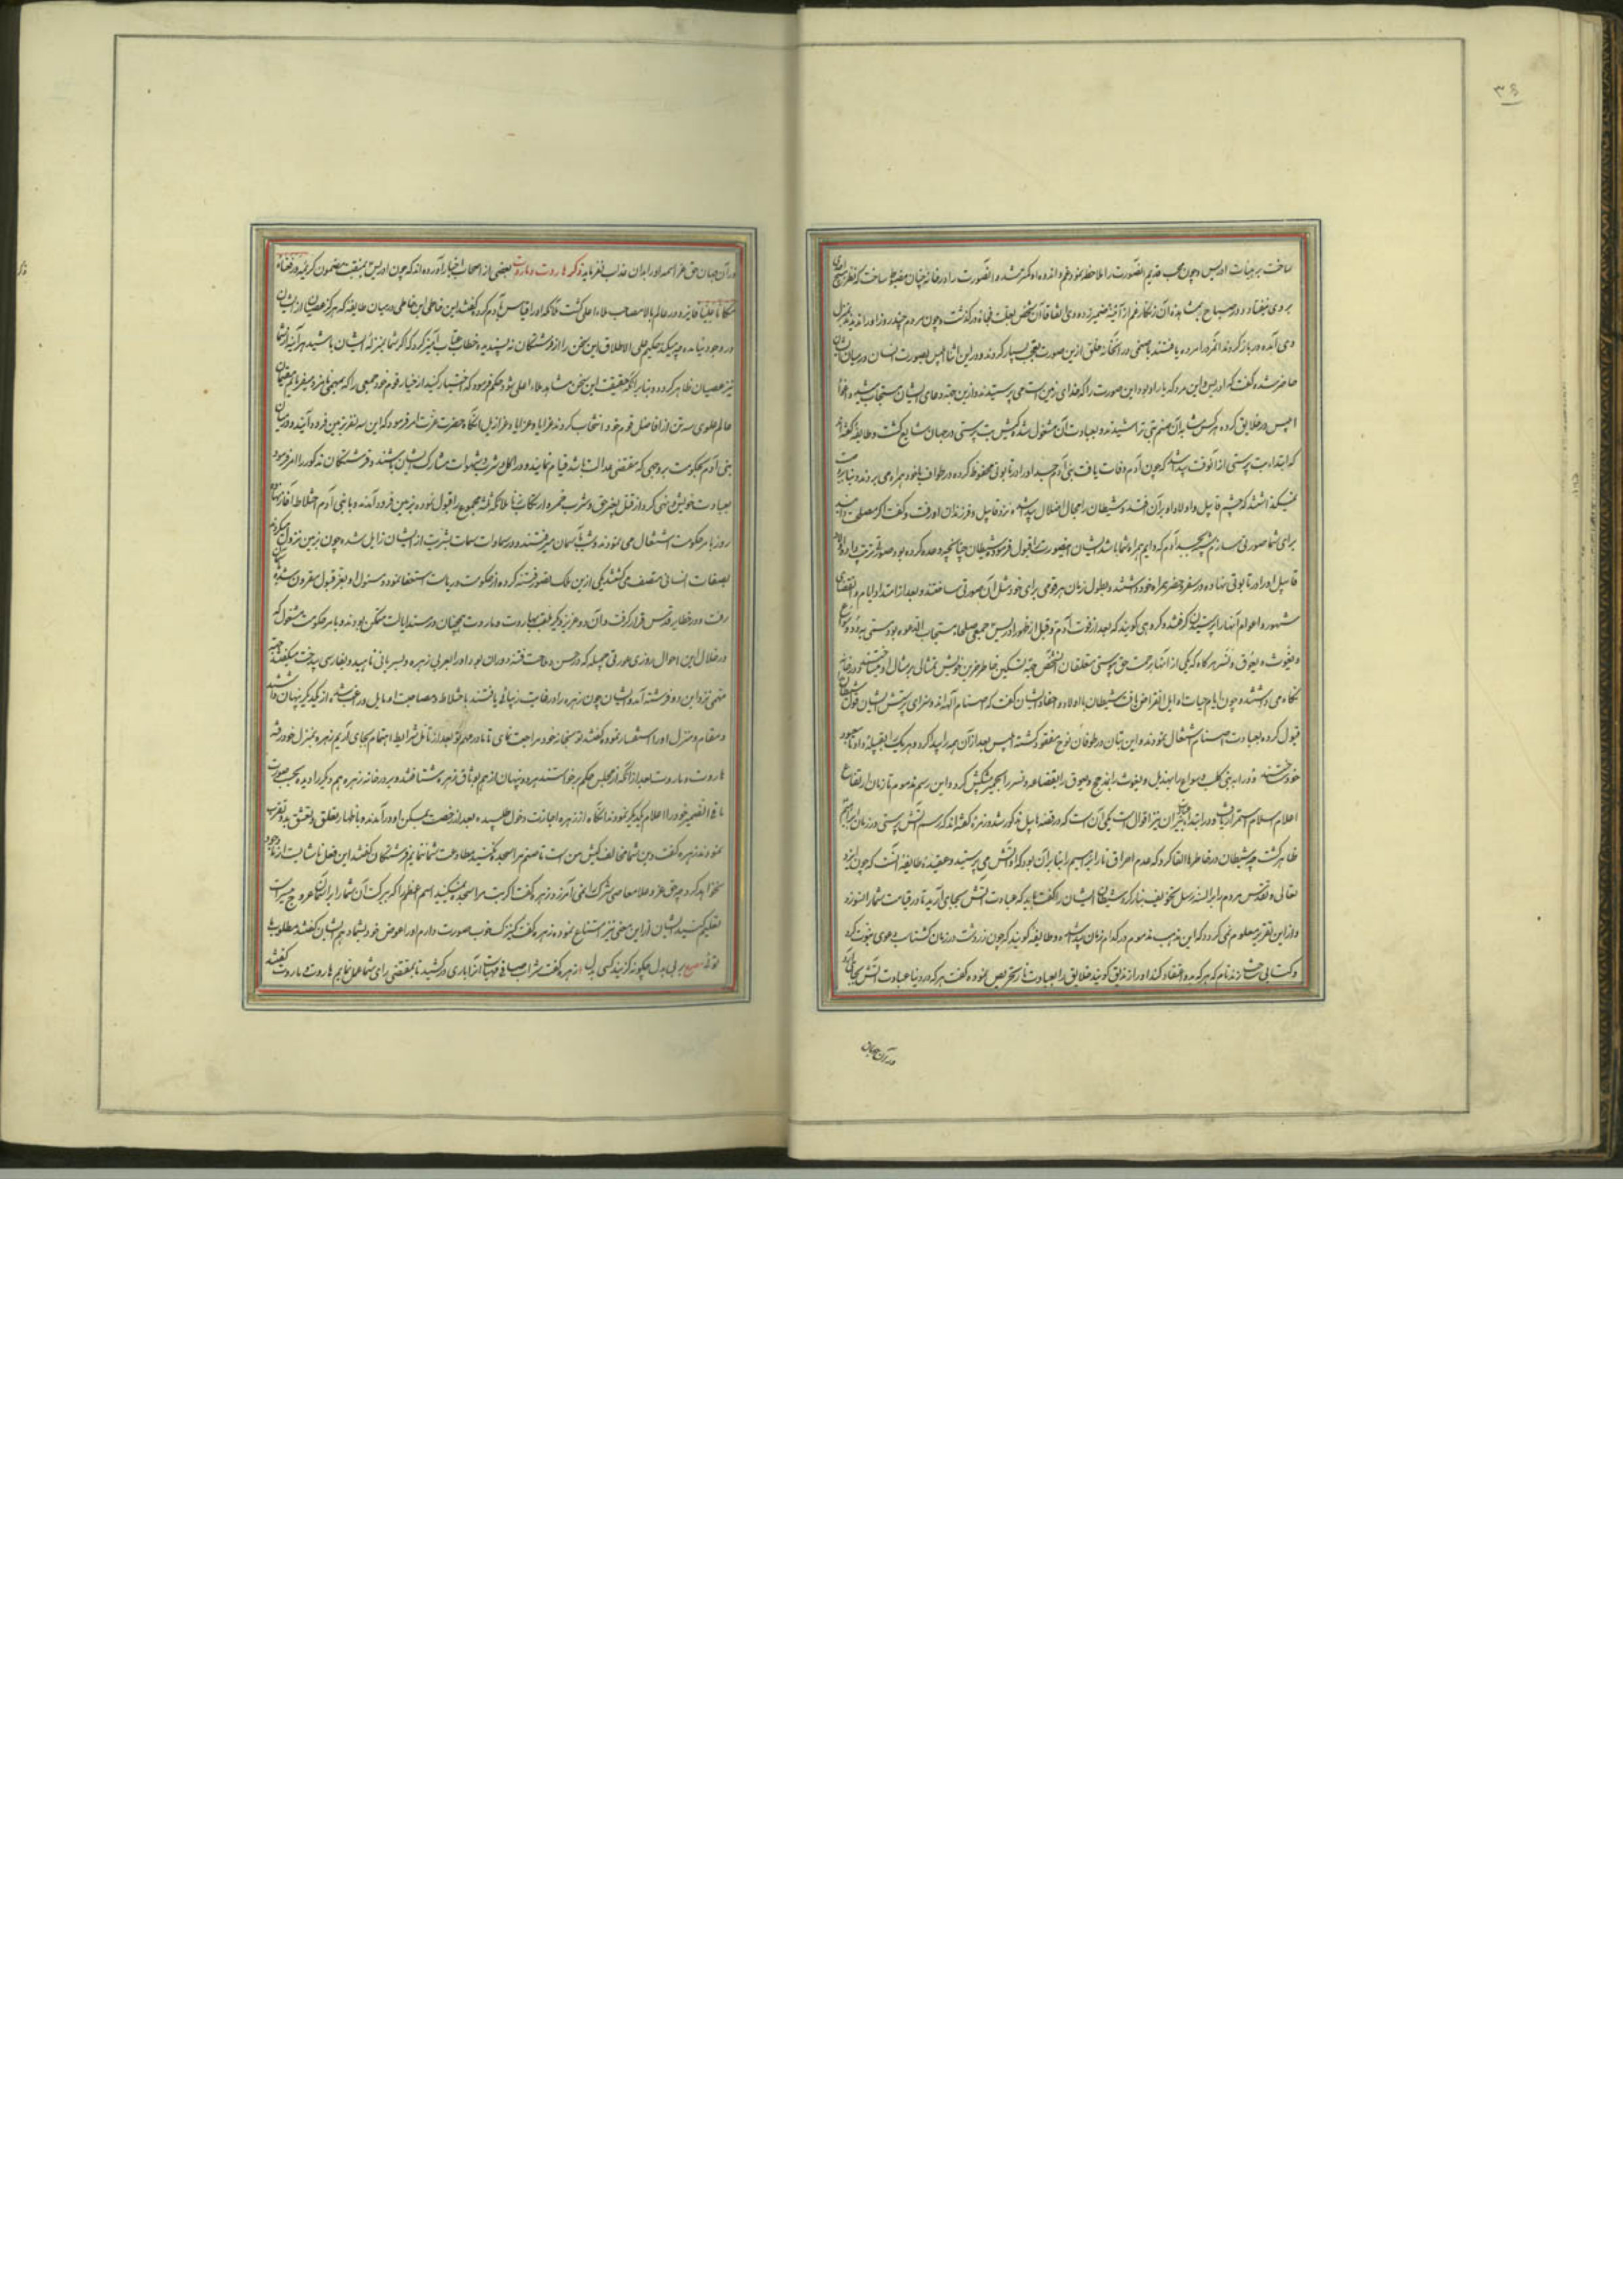 ۳۶
ساخت بر هیأت ادریس و چون محب قدیم الصورت را ملاحظه نمود غم و اندوه او کمتر شد و آنصورت را در خانه چنان مضبوط ساخت که نظر هیچ
بر وی نیفتاد و در صباح بمشاهده آن زنگار غم از آئینه ضمیر زدودی اتفاقا آن شخص بعلت فجاه درگذشت و چون مردم چند روز او را ندیدند بمنزل
وی آمده در باز کردند او را مرده یافتند با صنمی در آنخانه خلق ازین صورت تعجب بسیار کردند و در این اثنا ابلیس بصورت انسان در میان ایشان
حاضر شده گفت که ادریس و این مرد که یار او بود این صورت را که خدای زمین است می پرستیدند و ازین جهة دعای ایشان مستجاب میشد و اغوا
ابلیس در خلایق کرده هر کس بتی تراشیدند و بعبادت آن مشغول شده کیش بت پرستی در جهان شایع گشت و طایفه گفته اند
که ابتداء بت پرستی از آنوقت پیدا شد که چون آدم وفات یافت بنی آدم جسد او را در تابوتی محفوظ کرده در طواف با خود همراه می بردند و
نمیگذاشتند که چشم قابیل و اولاد او بر آن افتد و شیطان را مجال اضلال پیدا شد نزد قابیل و فرزندان او رفت و گفت اگر مصلحت دانید
برای شما صورتی سازم شبیه بجسد آدم که دایم همراه شما باشد ایشان اینصورت را قبول فرموده شیطان چنانچه وعده کرده بود صورتی ترتیب داد و اولاد
قابیل او را در تابوتی نهاده در سفر و حضر همراه خود داشتند و بطول زمان هر قومی برای خود مثل آن صورتی ساختند و بعد از امتداد ایام و انقضای
شهور و اعوام آنها را پرستیدن گرفتند و گروهی گویند که بعد از فوت آدم و قبل از ظهور ادریس جمعی صلحاء مستجاب الدعوه بودند مسمی به ود و سواع
و یغوث و یعوق و نسر هرگاه که یکی از آنها برحمت حق پیوستی متعلقان آنشخص جهة تسکین خاطر حزین خویش تمثالی بر مثال او میساختند و در خانه
نگاه می داشتند و چون ایام حیات اوایل انقراض یافت شیطان با اولاد و احفاد ایشان گفت که اصنام الهه اند و سزای پرستش ایشان قول شیطان
قبول کرده بعبادت اصنام اشتغال نمودند و این بتان در طوفان نوح مفقود گشته ابلیس بعد از آن همه را پیدا کرد و هر یک را بقبیله داد تا معبود
خود ساختند ود را به بنی کلب و سواع را بهذیل و یغوث را بمذحج و یعوق را بقضاعه و نسر را بحمیر پیشکش کرد و این رسم مذموم تا زمان ارتفاع
اعلام اسلام استمرار یافت و در ابتداء ظهور نیران نیز اقوال است یکی آن است که در قصه هابیل مذکور شد و زمره گفته اند که رسم آتش پرستی در زمان ابراهیم
ظاهر گشت چه شیطان در خاطرها القا کرد که عدم احراق نار ابراهیم را بنابر آن بود که او آتش می پرستید و عقیده طایفه آنست که چون ایزد
تعالی و تقدس مردم را بر السنه رسل تخویف بنار کرد شیطان ایشان را گفت باید که عبادت آتش بجای آرید تا در قیامت شما را نسوزد
و از این تقریر معلوم نمی گردد که این مذهب مذموم در کدام زمان پیدا شده و طایفه گویند که چون زردشت در زمان گشتاسب دعوی نبوت کرد
و کتابی ساخت زند نام که هر که بدو اعتقاد کند او را زندیق گویند خلایق را بعبادت نار تحریص نموده گفت هر که در دنیا عبادت آتش بجای آرد
در آن جهان
در آن جهان حق عز اسمه او را بدان عذاب نفرماید ذکر هاروت و ماروت بعضی از اصحاب اخبار آورده اند که چون ادریس بمنقبت مضمون کریمه و رفعناه
مکانا علیا فایز و در عالم بالا مصاحب ملاء اعلی گشت ملائکه او را قیاس بآدم کرده گفتند این خاطی ابن خاطی در میان طایفه که هرگز عصیان از ایشان
در وجود نیامده چه میکند حکیم علی الاطلاق این سخن را از فرشتگان نه پسندیده خطاب عتاب آمیز کرد که اگر شما بمنزله ایشان باشید هر آینه از شما
نیز عصیان ظاهر گردد و بنابر آنکه حقیقت این سخن مشاهد ملاء اعلی شود حکم فرمود که اختیار کنید از خیار قوم خود جمعی را که مهمی نامزد میفرمائیم مقیمان
عالم علوی سه تن از افاضل قوم خود انتخاب کردند عزا و عزایا و عزازیل آنگاه حضرت عزت امر فرمود که این سه نفر بزمین فرود آیند و در میان
بنی آدم بحکومت بر وجهی که مقتضی عدالت باشد قیام نمایند و در اکل و شرب و شهوات مشارک ایشان باشند و فرشتگان مذکور را امر فرمود
بعبادت خویش و نهی کرد از قتل بغیر حق و شرب خمر و ارتکاب زنا ملائکه ثلثه مجموع را قبول نموده بزمین فرود آمدند و با بنی آدم اختلاط آغاز نهاده
روز بامر حکومت اشتغال می نمودند و شب بآسمان میرفتند و در سماوات سمات بشریت از ایشان زایل شده چون بزمین نزول میکردند
بصفات انسانی متصف می گشتند یکی از این ملک تصور فتنه کرده از حکومت و ریاست استعفا نموده مسئول او بعز قبول مقرون شده
رفت و در حظایر قدس قرار گرفت و آن دو عزیز دیگر ملقب بهاروت و ماروت همچنان در مسند ایالت متمکن بودند و بامر حکومت مشغول که
در خلال این احوال روزی عورتی جمیله که در حسن و ملاحت فتنه دوران بود و او را بعربی زهره و بسریانی ناهید و بفارسی بیدخت میگفتند جهة
مهمی نزد این دو فرشته آمد و ایشان چون زهره را در غایت زیبائی یافتند باختلاط و مصاحبت او مایل و راغب شده از یکدیگر پنهان داشتند
و مقام و منزل او را استفسار نموده گفتند تو بخانه خود مراجعت نمای تا ما در مهم تو بعد از تامل شرایط اهتمام بجای آریم زهره بمنزل خود رفته
هاروت و ماروت بعد از آنکه از مجلس حکم برخواستند هر دو پنهان از هم بوثاق زهره شتافتند و بر در خانه زهره هم دیگر را دیده بحسب ضرورت
ما فی الضمیر خود را اعلام یکدیگر نمودند آنگاه از زهره اجازت دخول طلبیده بعد از رخصت بمسکن او در آمدند و باظهار تعلق و تعشق بدو تقرب
نمودند زهره گفت دین شما مخالف کیش من است تا صنم مرا سجده نکنید مطاوعت شما ننمایم فرشتگان گفتند این فعل ناشایست از ما بوجود
نخواهد آمد چه حق عز و علا معاصی شرک را نمی آمرزد زهره گفت اگر بت مرا سجده نمیکنید اسم اعظم را که ببرکت آن شما را بر آسمان عروج میسر است
تعلیم کنید ایشان از این معنی نیز امتناع نمودند زهره گفت کنیزک خوب صورت دارم او را عوض خود بشما دهم ایشان گفتند مطلوب ما
توئی مصرع بر بی بدل چگونه گزیند کسی بدل زهره گفت شراب صافی مهیاست آنرا باری در کشید تا بمقتضی رای شما عمل نمایم هاروت و ماروت گفتند